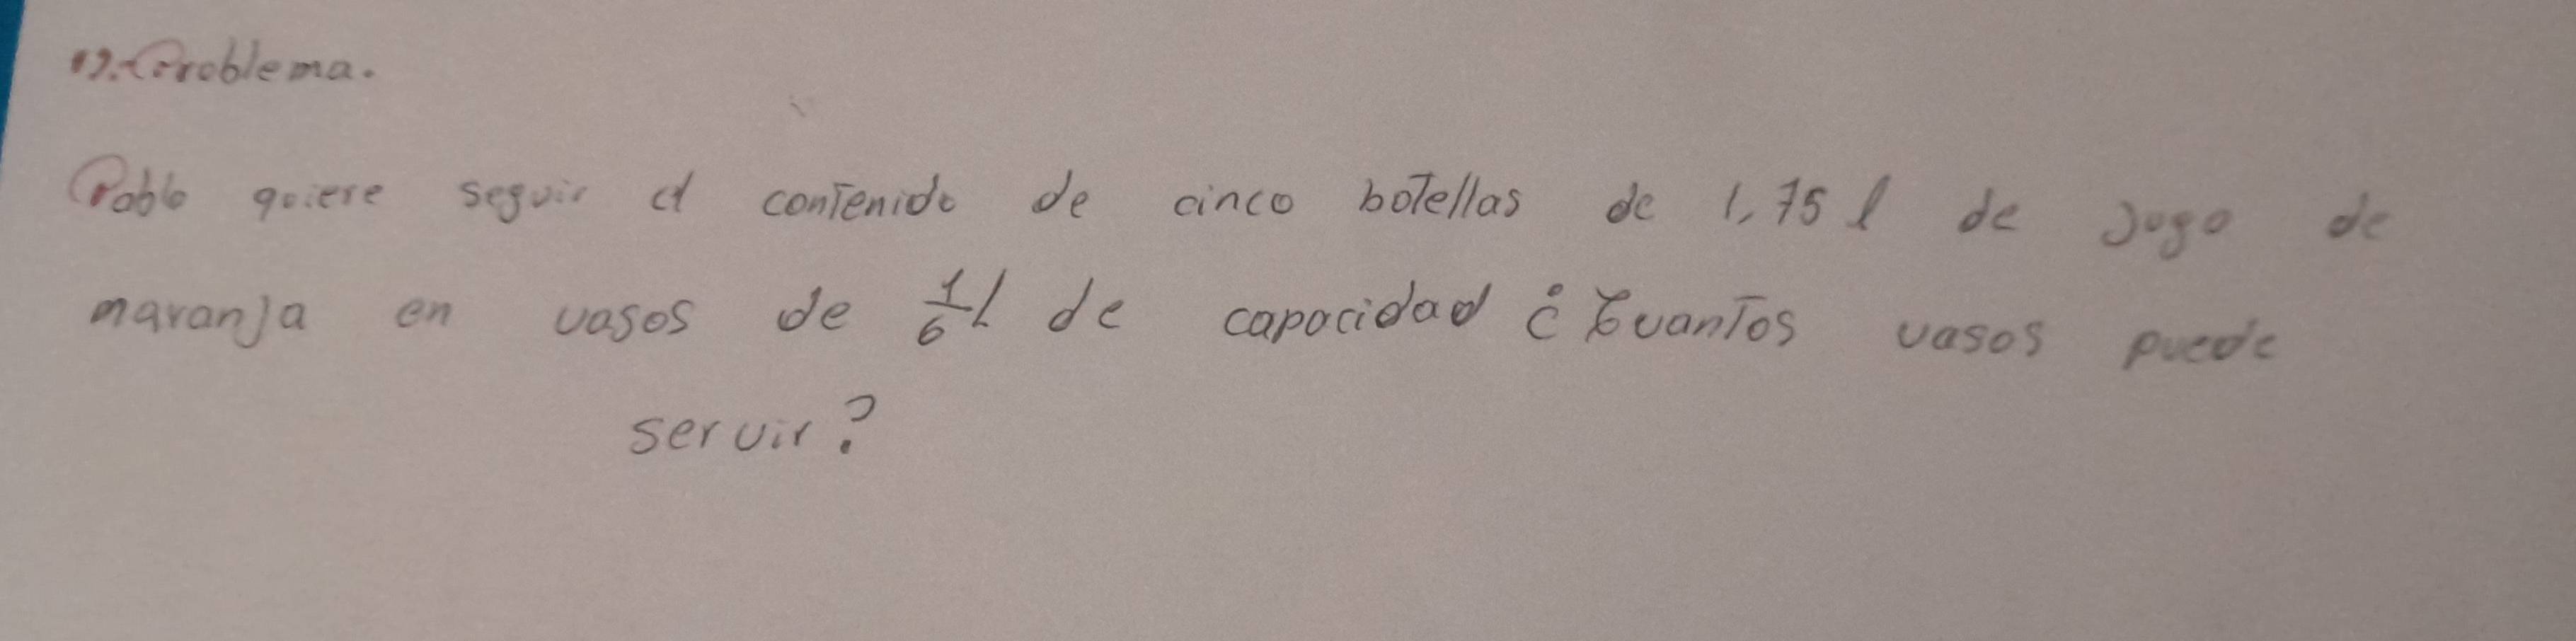 1).-Problema.
Pablo quiere seguir el contenido de cinco botellas de 1,75 l de Jugo de
naranja en vasos de 1/6 L de capacidad ¿Cuantos vasos puede
servir?